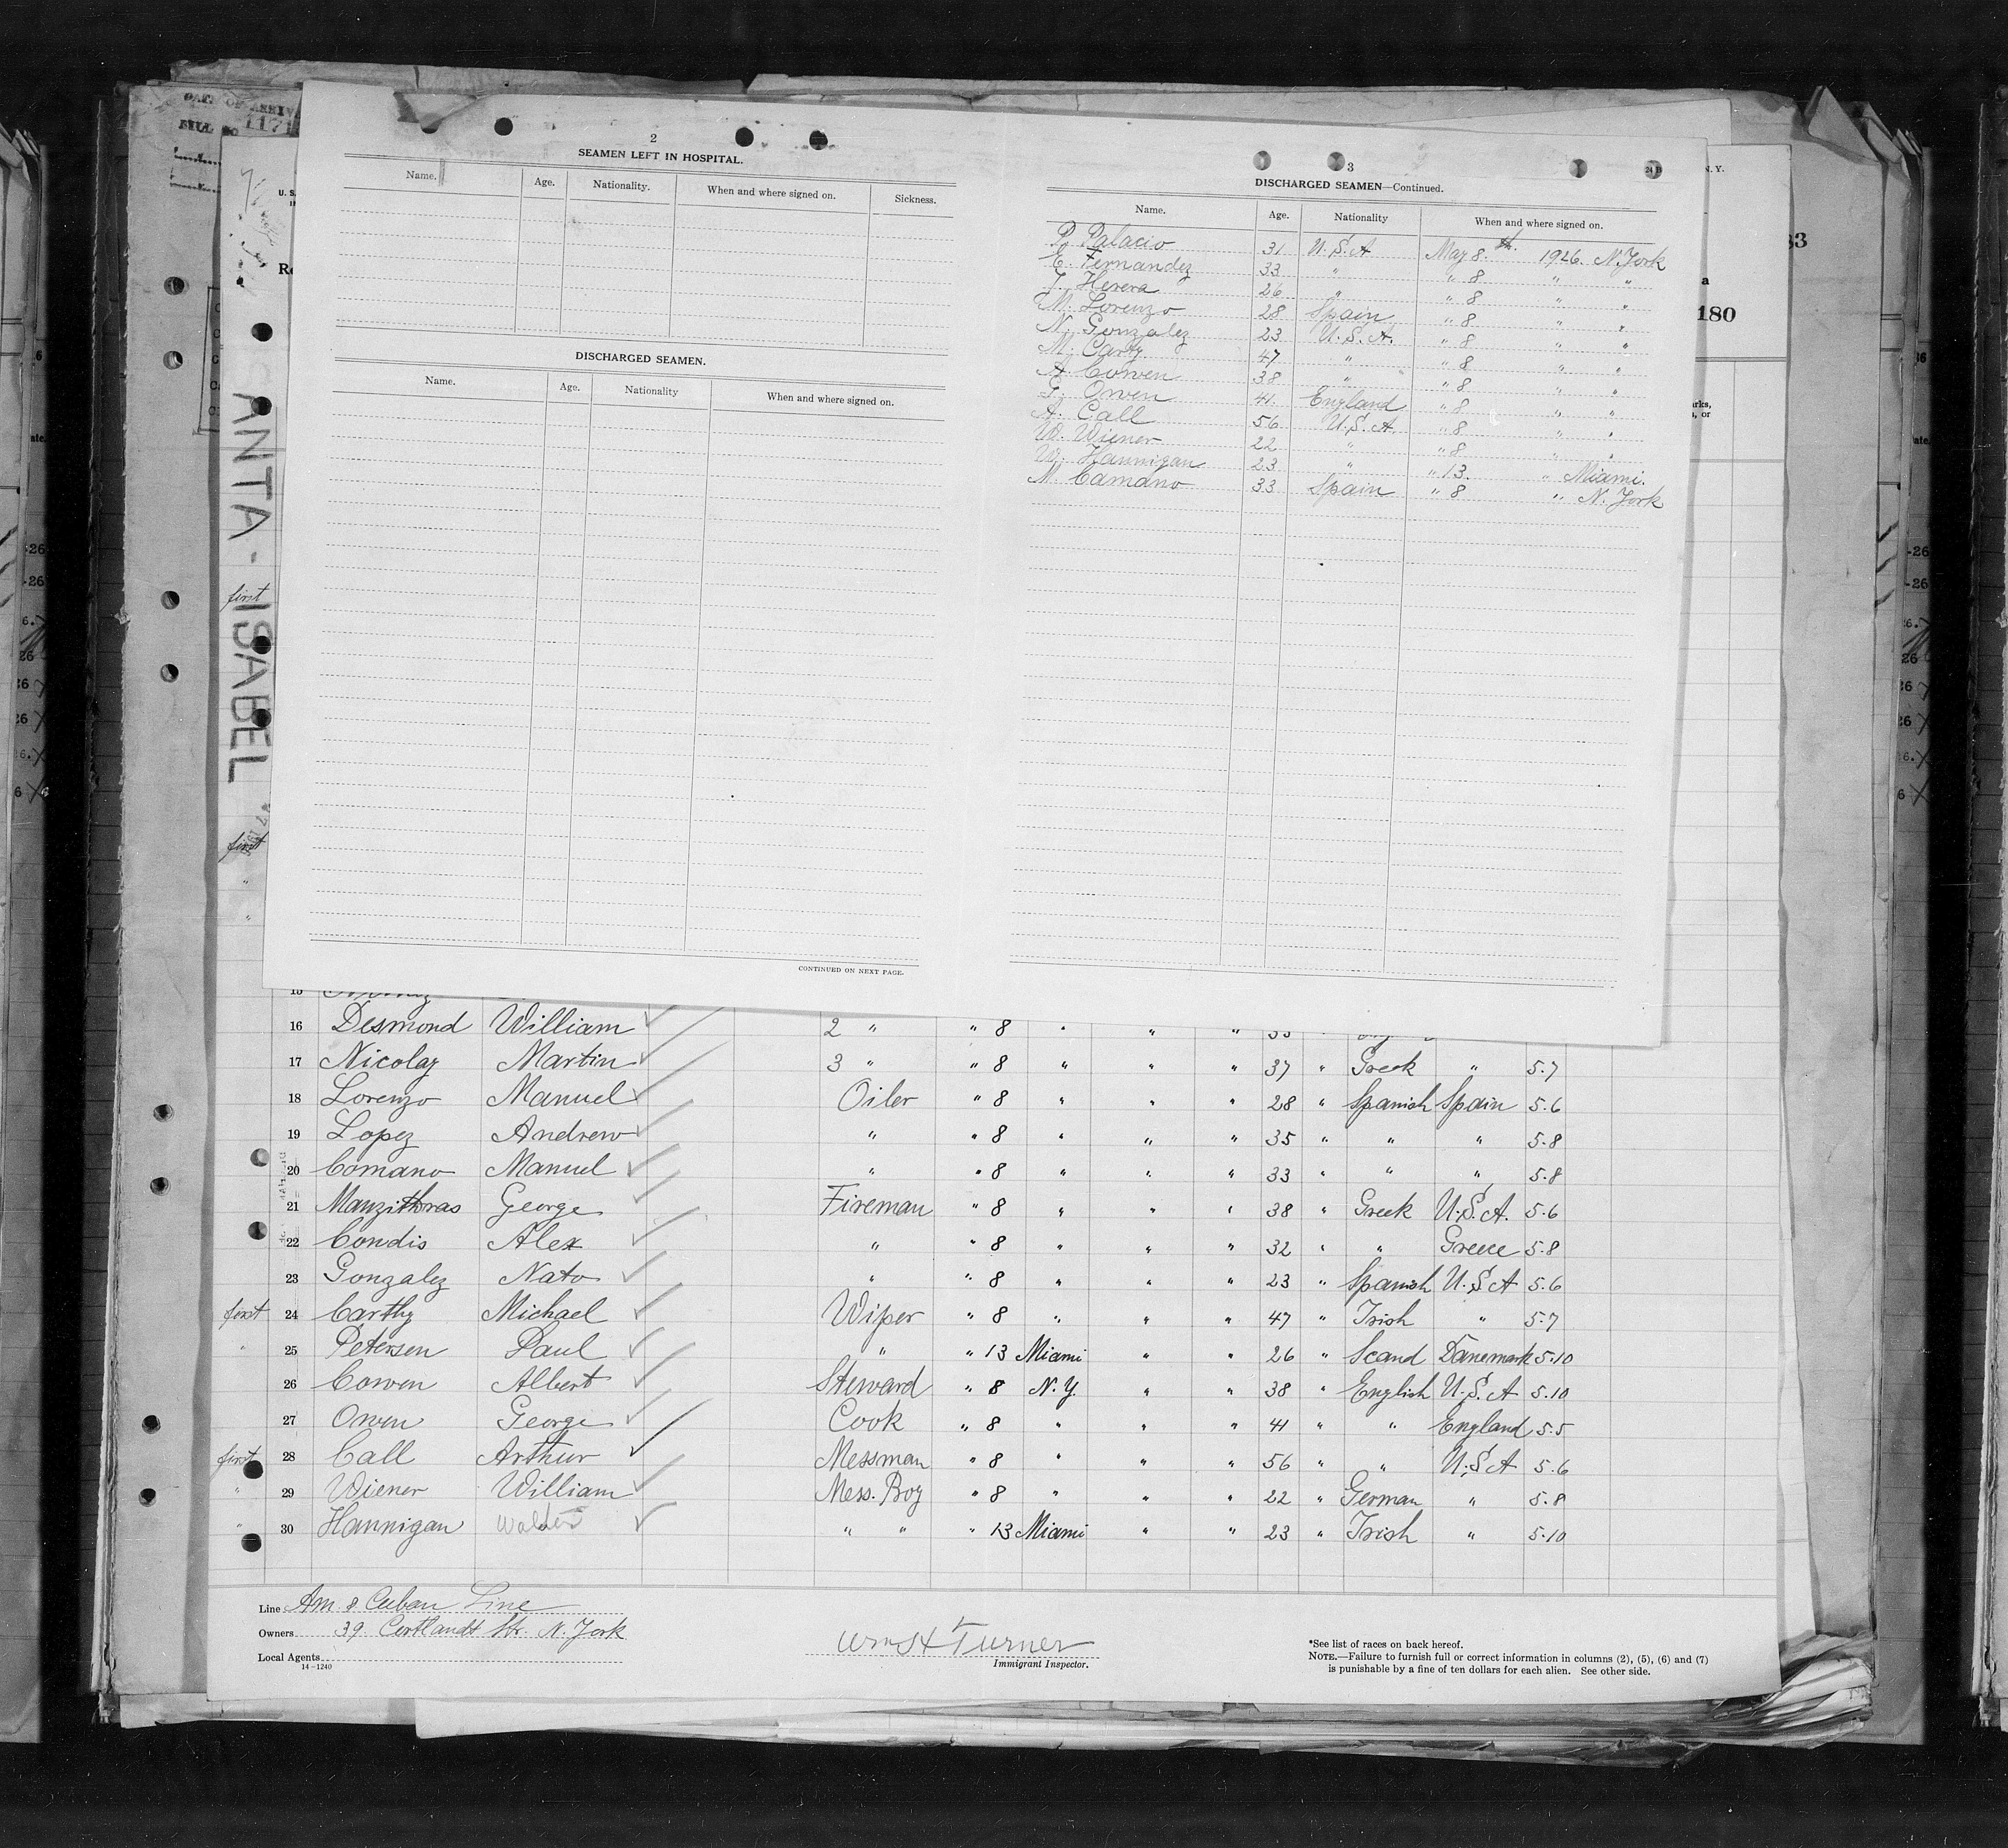 DATE OF ARRIV
FILE NO 1171
U. S.
Re
ANTA - ISABEL
2
SEAMEN LEFT IN HOSPITAL.
Name. Age. Nationality. When and where signed on. Sickness.
DISCHARGED SEAMEN.
Name. Age. Nationality When and where signed on.
CONTINUED ON NEXT PAGE.
3
24 B
N. Y.
DISCHARGED SEAMEN—Continued.
Name. Age. Nationality When and where signed on.
P. Palacio 31 U.S.A May 8th. 1926. N. York
E. Fernandez 33 " " 8 " "
J. Herera 26 " " 8 " "
M. Lorenzo 28 Spain " 8 " "
N. Gonzalez 23 U.S.A. " 8 " "
M. Carty 47 " " 8 " "
A Cowen 38 " " 8 " "
G. Owen 41. England " 8 " "
A. Call 56 U.S.A. " 8 " "
W. Wiener 22 " " 8 " "
W. Hannigan 23 " " 13. " Miami.
M. Camano 33 Spain " 8 " N. York
83
a
180
arks,
, or
first
first
"
"
15
16 Desmond William 2 " " 8 " " " 33 "
17 Nicolay Martin 3 " " 8 " " " 37 " Greek " 5.7
18 Lorenzo Manuel Oiler " 8 " " " 28 " Spanish Spain 5.6
19 Lopez Andrew " " 8 " " " 35 " " " 5.8
20 Comano Manuel " " 8 " " " 33 " " " 5.8
21 Manzithras George Fireman " 8 " " " 38 " Greek U.S.A. 5.6
22 Condis Alex " " 8 " " " 32 " " Greece 5.8
23 Gonzalez Nato " " 8 " " " 23 " Spanish U.S.A 5.6
first 24 Carthy Michael Wiper " 8 " " " 47 " Irish " 5.7
" 25 Petersen Paul " " 13 Miami " " 26 " Scand Danemark 5.10
26 Cowen Albert Steward " 8 N.Y. " " 38 " English U.S.A 5.10
27 Owen George Cook " 8 " " " 41 " " England 5.5
first 28 Call Arthur Messman " 8 " " " 56 " " U.S.A 5.6
" 29 Wiener William Mess. Boy " 8 " " " 22 " German " 5.8
" 30 Hannigan Walter " " " 13 Miami " " 23 " Irish " 5.10
Line Am & Cuban Line
Owners 39. Cortlandt Str. N. York
Local Agents
14—1240
Wm H Turner
Immigrant Inspector.
*See list of races on back hereof.
NOTE.—Failure to furnish full or correct information in columns (2), (5), (6) and (7)
is punishable by a fine of ten dollars for each alien. See other side.